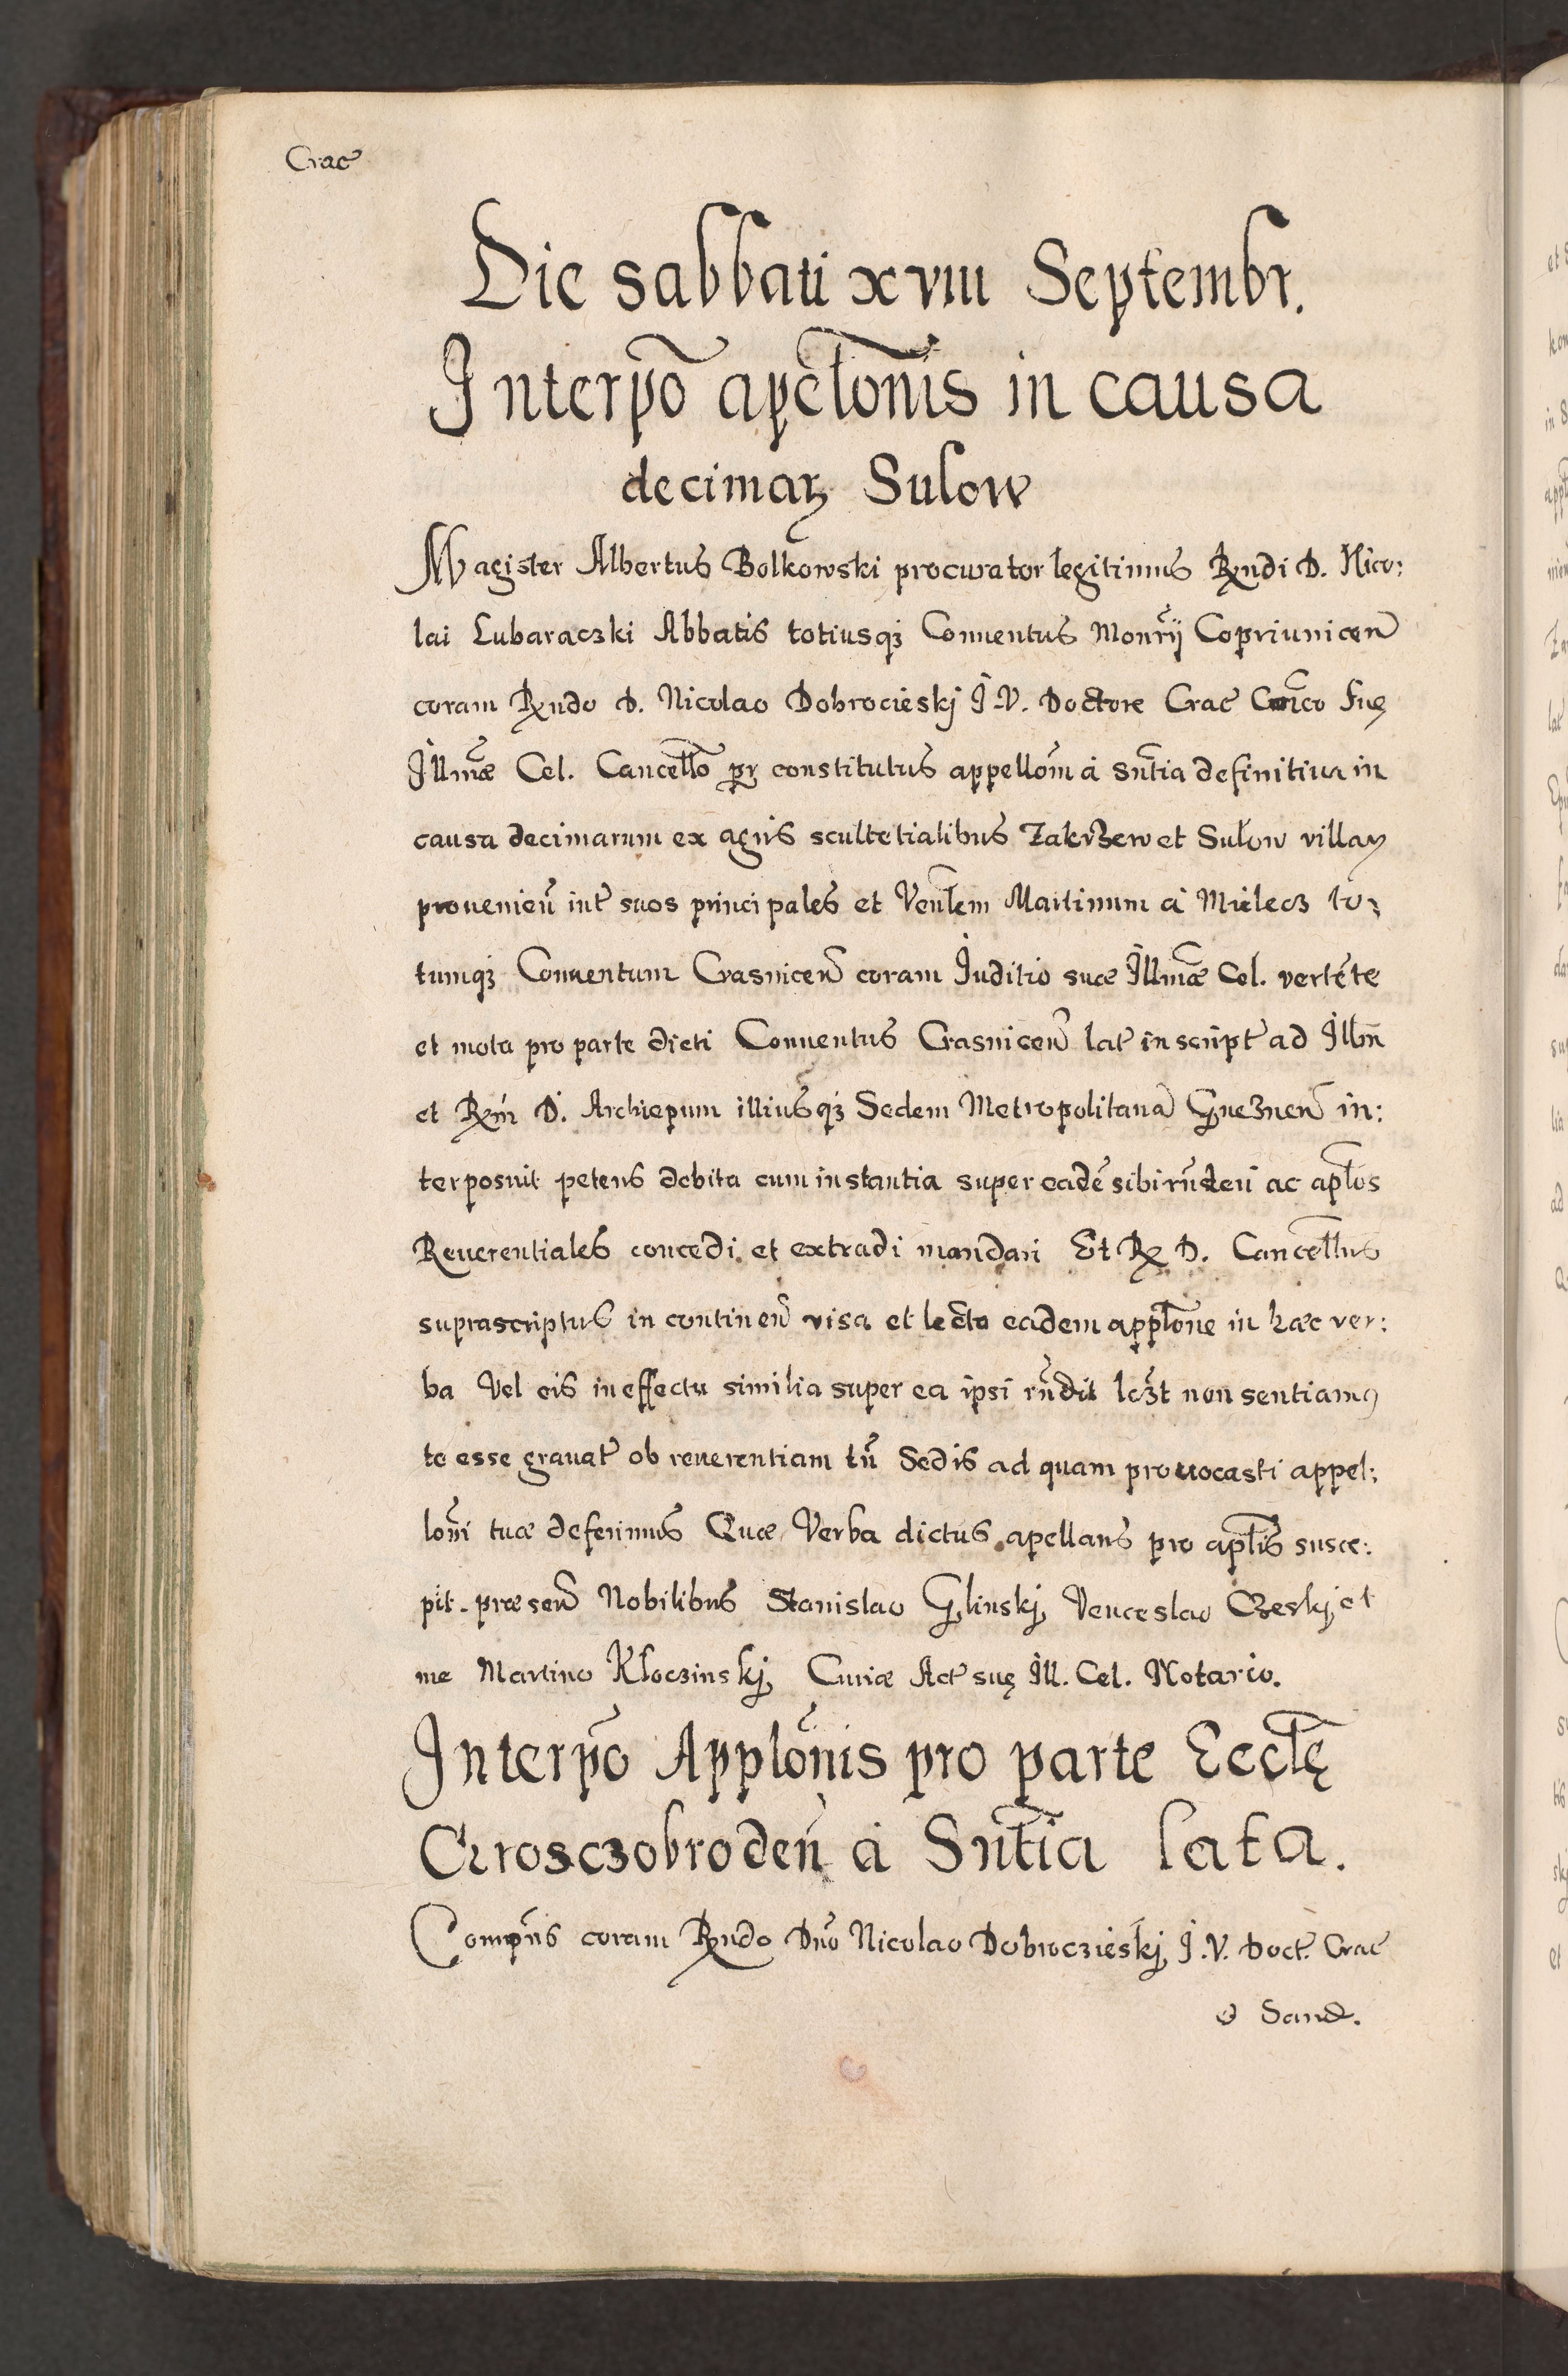 Crac̃
Die sabbati xviii Septembr.
Interpõ apelt̃onis in causa
decimaꝝ Sulow
Magister Albertus Bolkowski procurator legitimus Rndi D. Nico:
lai Lubaraczki Abbatis totiusqȝ Conuentus Monr̃ij Copriunicen̄
coram Rndo D. Nicolao Dobrocieskj J.V. Doctore Crac̃ Can̄co Suę
Illmæ Cel. Cancellõ pr constitutus appellom̃ à Snt̃ia definitiua in
causa decimarum ex agris scultetialibus Zakrzew et Sulow villaꝝ
prouenien̄ int̃ suos principales et Venl̃em Martinum à Mielecz to:
tumqȝ Conuentum Crasnicen̄ coram Juditio suæ Illmæ Cel. vertẽte
et mota pro parte dicti Conuentus Crasnicen̄ lat̃ in script̃ ad Illm̃
et Rm̃ D. Archiepum illiusqȝ Sedem Metropolitanã Gneznen̄ in:
terposuit petens debita cum instantia super eadẽ sibi rñderi ac apl̃os
Reuerentiales concedi et extradi mandari Et R D. Cancell̃us
suprascriptus in continen̄ visa et lecta eadem appl̃one in hæc ver:
ba Vel eis in effectu similia super ea ipsi rñdit leȝt non sentiamꝯ
te esse grauat̃ ob reuerentiam tñ Sedis ad quam prouocasti appel:
lon̄i tuæ deferimus Quæ Verba dictus apellans pro apl̃is susce:
pit. præsen̄ Nobilibus Stanislao Glinskj, Venceslao Czeskj, et
me Martino Kłoczinskj, Curiæ Act̃ suę Ill. Cel. Notario.
Interpõ Applõnis pro parte Eccl̃ę
Croszczobroden̄ à Snt̃ia lata.
Compñs coram Rndo Dño Nicolao Dobroczieskj, J.V. Doct. Crac̃
& Sand.